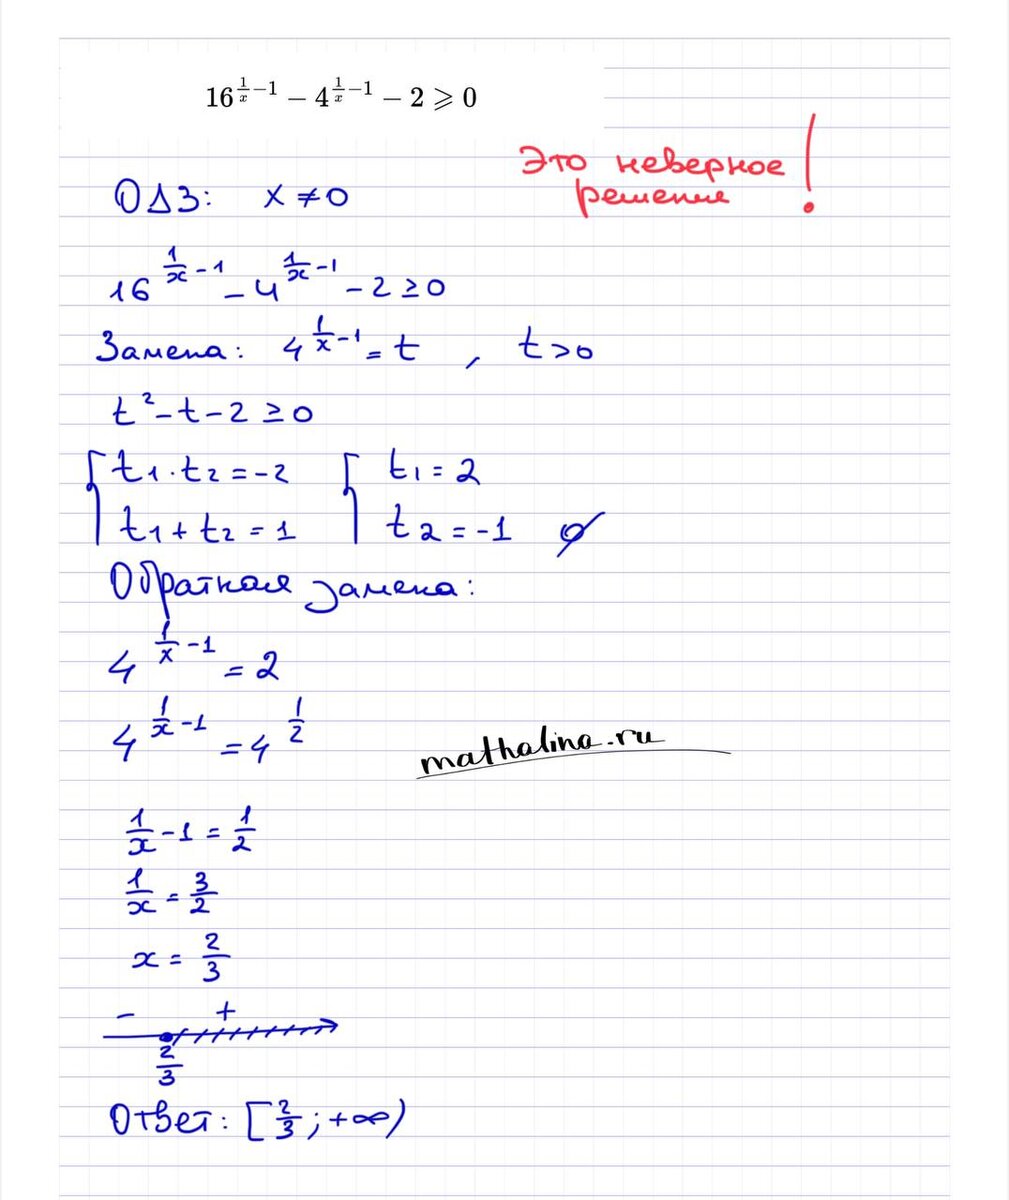 16^{\frac{1}{x}-1} - 4^{\frac{1}{x}-1} - 2 ⩾ 0
Это неверное !
решение
ОДЗ: x ≠ 0
16^{\frac{1}{x}-1} - 4^{\frac{1}{x}-1} - 2 ≥ 0
Замена: 4^{\frac{1}{x}-1} = t , t > 0
t² - t - 2 ≥ 0
[ t₁ · t₂ = -2 [ t₁ = 2
t₁ + t₂ = 1 t₂ = -1 ∅
Обратная замена:
4^{\frac{1}{x}-1} = 2
4^{\frac{1}{x}-1} = 4^{\frac{1}{2}}
mathalina.ru
\frac{1}{x} - 1 = \frac{1}{2}
\frac{1}{x} = \frac{3}{2}
x = \frac{2}{3}
- +
\frac{2}{3}
Ответ: [\frac{2}{3}; +∞)